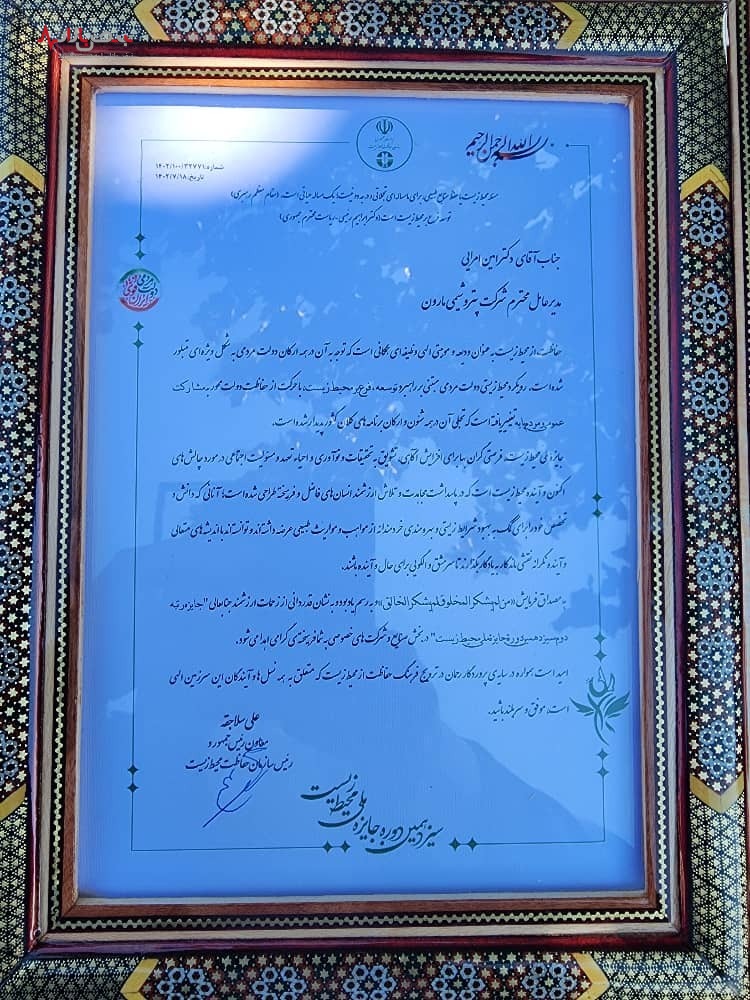 بسم الله الرحمن الرحیم
شماره: ۱۴۰۲/۱۰۰/۳۲۷۷۱
تاریخ: ۱۴۰۲/۷/۱۸
مسئله محیط زیست و حفظ منابع طبیعی، برای ما مسئله‌ای تجملاتی و درجه دو نیست؛ یک مسئله حیاتی است. (مقام معظم رهبری)
توسعه فرع بر محیط زیست است (دکتر ابراهیم رئیسی، ریاست محترم جمهوری)
جناب آقای دکتر امین امرایی
مدیر عامل محترم شرکت پتروشیمی مارون
حفاظت از محیط زیست به عنوان ودیعه و موهبتی الهی وظیفه‌ای همگانی است که توجه به آن در همه ارکان دولت مردمی به شکل ویژه‌ای متبلور
شده است. رویکرد محیط زیستی دولت مردمی مبتنی بر راهبرد توسعه، فرع بر محیط زیست، با حرکت از حفاظت دولت محور به مشارکت
عموم و مردم پایه تغییر یافته است که تجلی آن در همه شئون و ارکان برنامه های کلان کشور پدیدار شده است.
جایزه ملی محیط زیست، فرصتی گران بها برای افزایش آگاهی، تشویق به تحقیقات و نوآوری و احیاء تعهد و مسئولیت اجتماعی در مورد چالش های
اکنون و آینده محیط زیست است که در پاسداشت مجاهدت و تلاش ارزشمند انسان های فاضل و فریخته طراحی شده است؛ آنانی که دانش و
تخصص خود را برای کمک به بهبود شرایط زیستی و بهره مندی خردمندانه از مواهب و مواریث طبیعی عرضه داشته‌اند و توانسته‌اند با اندیشه های متعالی
و آینده نگرانه نقشی ماندگار به یادگار بگذارند تا سرمشق و الگویی برای حال و آینده باشند.
به مصداق فرمایش «من لم یشکر المخلوق لم یشکر الخالق» و به رسم یادبود و به نشان قدردانی از زحمات ارزشمند جنابعالی "جایزه رتبه
دوم سیزدهمین دوره جایزه ملی محیط زیست" در بخش صنایع و شرکت های خصوصی به شما فریخته‌ی گرامی اهدا می شود.
امید است همواره در سایه‌ی پروردگار رحمان در ترویج فرهنگ حفاظت از محیط زیست که متعلق به همه نسل ها و آیندگان این سرزمین الهی
است، موفق و سربلند باشید.
علی سلاجقه
معاون رئیس جمهور و
رئیس سازمان حفاظت محیط زیست
سیزدهمین دوره جایزه ملی محیط زیست